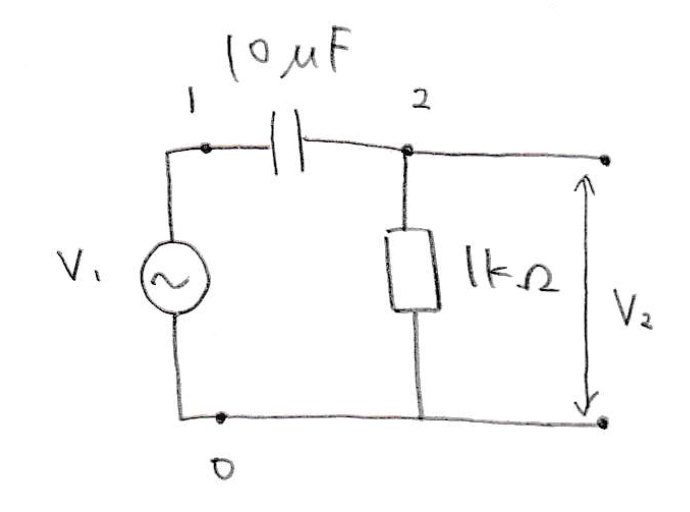 10 μF
1
2
V₁
1kΩ
V₂
0